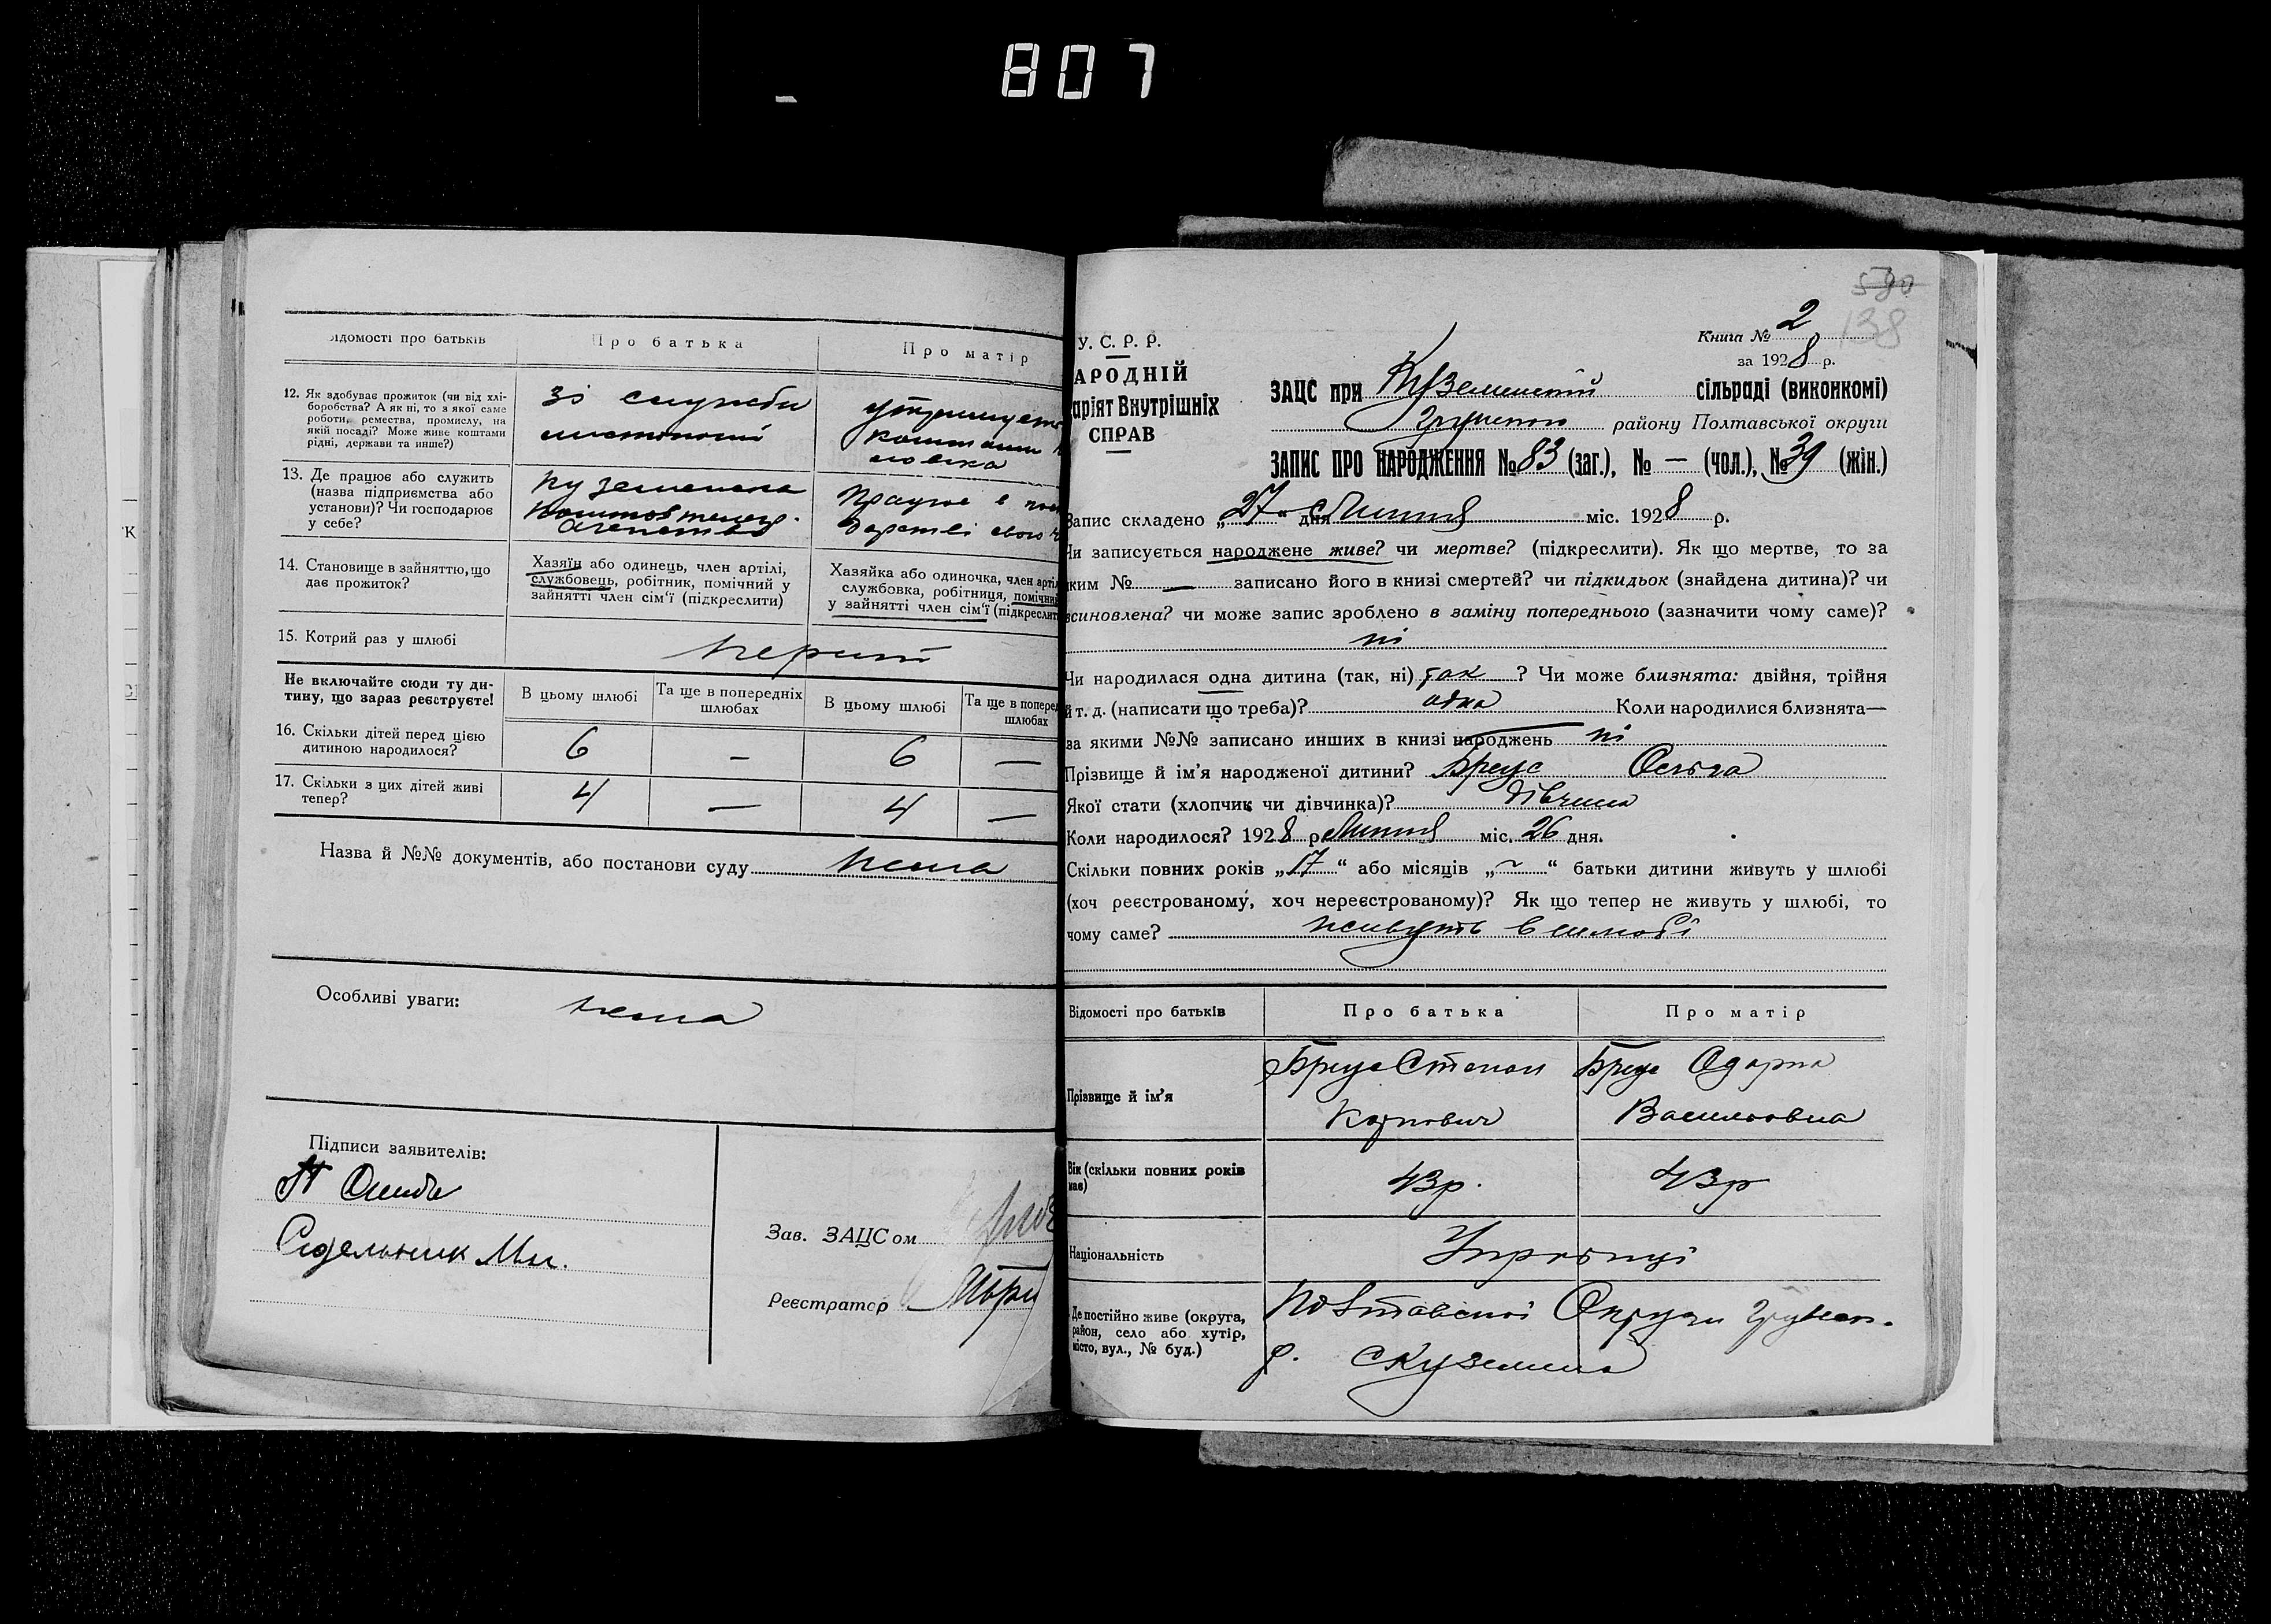 807
Відомості про батьків
Про батька
Про матір
12. Як здобуває прожиток (чи від хлі-
боробства? А як ні, то з якої саме
роботи, ремества, промислу, на
якій посаді? Може живе коштами
рідні, держави та инше?)
зі служби
листоноші
коштами
13. Де працює або служить
(назва підприємства або
установи)? Чи господарює
у себе?
Куземенська
Агенство
Працює в
свого
14. Становище в зайняттю, що
дає прожиток?
Хазяїн або одинець, член артілі,
службовець, робітник, помічний у
зайнятті член сім'ї (підкреслити)
Хазяйка або одиночка, член артілі
службовка, робітниця, помічний
у зайнятті член сім'ї (підкреслит
15. Котрий раз у шлюбі
перший
Не включайте сюди ту ди-
тину, що зараз реєструєте!
В цьому шлюбі
Та ще в попередніх
шлюбах
В цьому шлюбі
Та ще в поперед
шлюбах
16. Скільки дітей перед цією
дитиною народилося?
6 — 6 —
17. Скільки з цих дітей живі
тепер?
4 — 4 —
Назва й №№ документів, або постанови суду нема
Особливі уваги: нема
Підписи заявителів:
Сидельник Мих.
Зав. ЗАЦСом
Реєстратор
590
138
Книга № 2
за 1928 р.
У. С. Р. Р.
АРОДНІЙ
аріят Внутрішніх
СПРАВ
ЗАЦС при Куземенській сільраді (виконкомі)
Грунськ району Полтавської округи
ЗАПИС ПРО НАРОДЖЕННЯ № 83 (заг.), № — (чол.), № 39 (жін.)
Запис складено „27“ дня Липня міс. 1928 р.
Чи записується народжене живе? чи мертве? (підкреслити). Як що мертве, то за
яким № — записано його в книзі смертей? чи підкидьок (знайдена дитина)? чи
всиновлена? чи може запис зроблено в заміну попереднього (зазначити чому саме)?
ні
Чи народилася одна дитина (так, ні) так ? Чи може близнята: двійня, трійня
й т. д. (написати що треба)? одна Коли народилися близнята—
за якими №№ записано инших в книзі народжень ні
Прізвище й ім'я народженої дитини? Бреус Ольга
Якої стати (хлопчик чи дівчинка)? дівчина
Коли народилося? 1928 р Липня міс. 26 дня.
Скільки повних років „17“ або місяців „~“ батьки дитини живуть у шлюбі
(хоч реєстрованому, хоч нереєстрованому)? Як що тепер не живуть у шлюбі, то
чому саме? живуть в шлюбі
Відомості про батьків
Про батька
Про матір
Прізвище й ім'я
Бреус Степан
Карпович
Бреус Одарка
Васильовна
Вік (скільки повних років
має)
43р.
43р
Національність
Українці
Де постійно живе (округа,
район, село або хутір,
місто, вул., № буд.)
Полтавської Округи Грунськ.
р. с Куземина